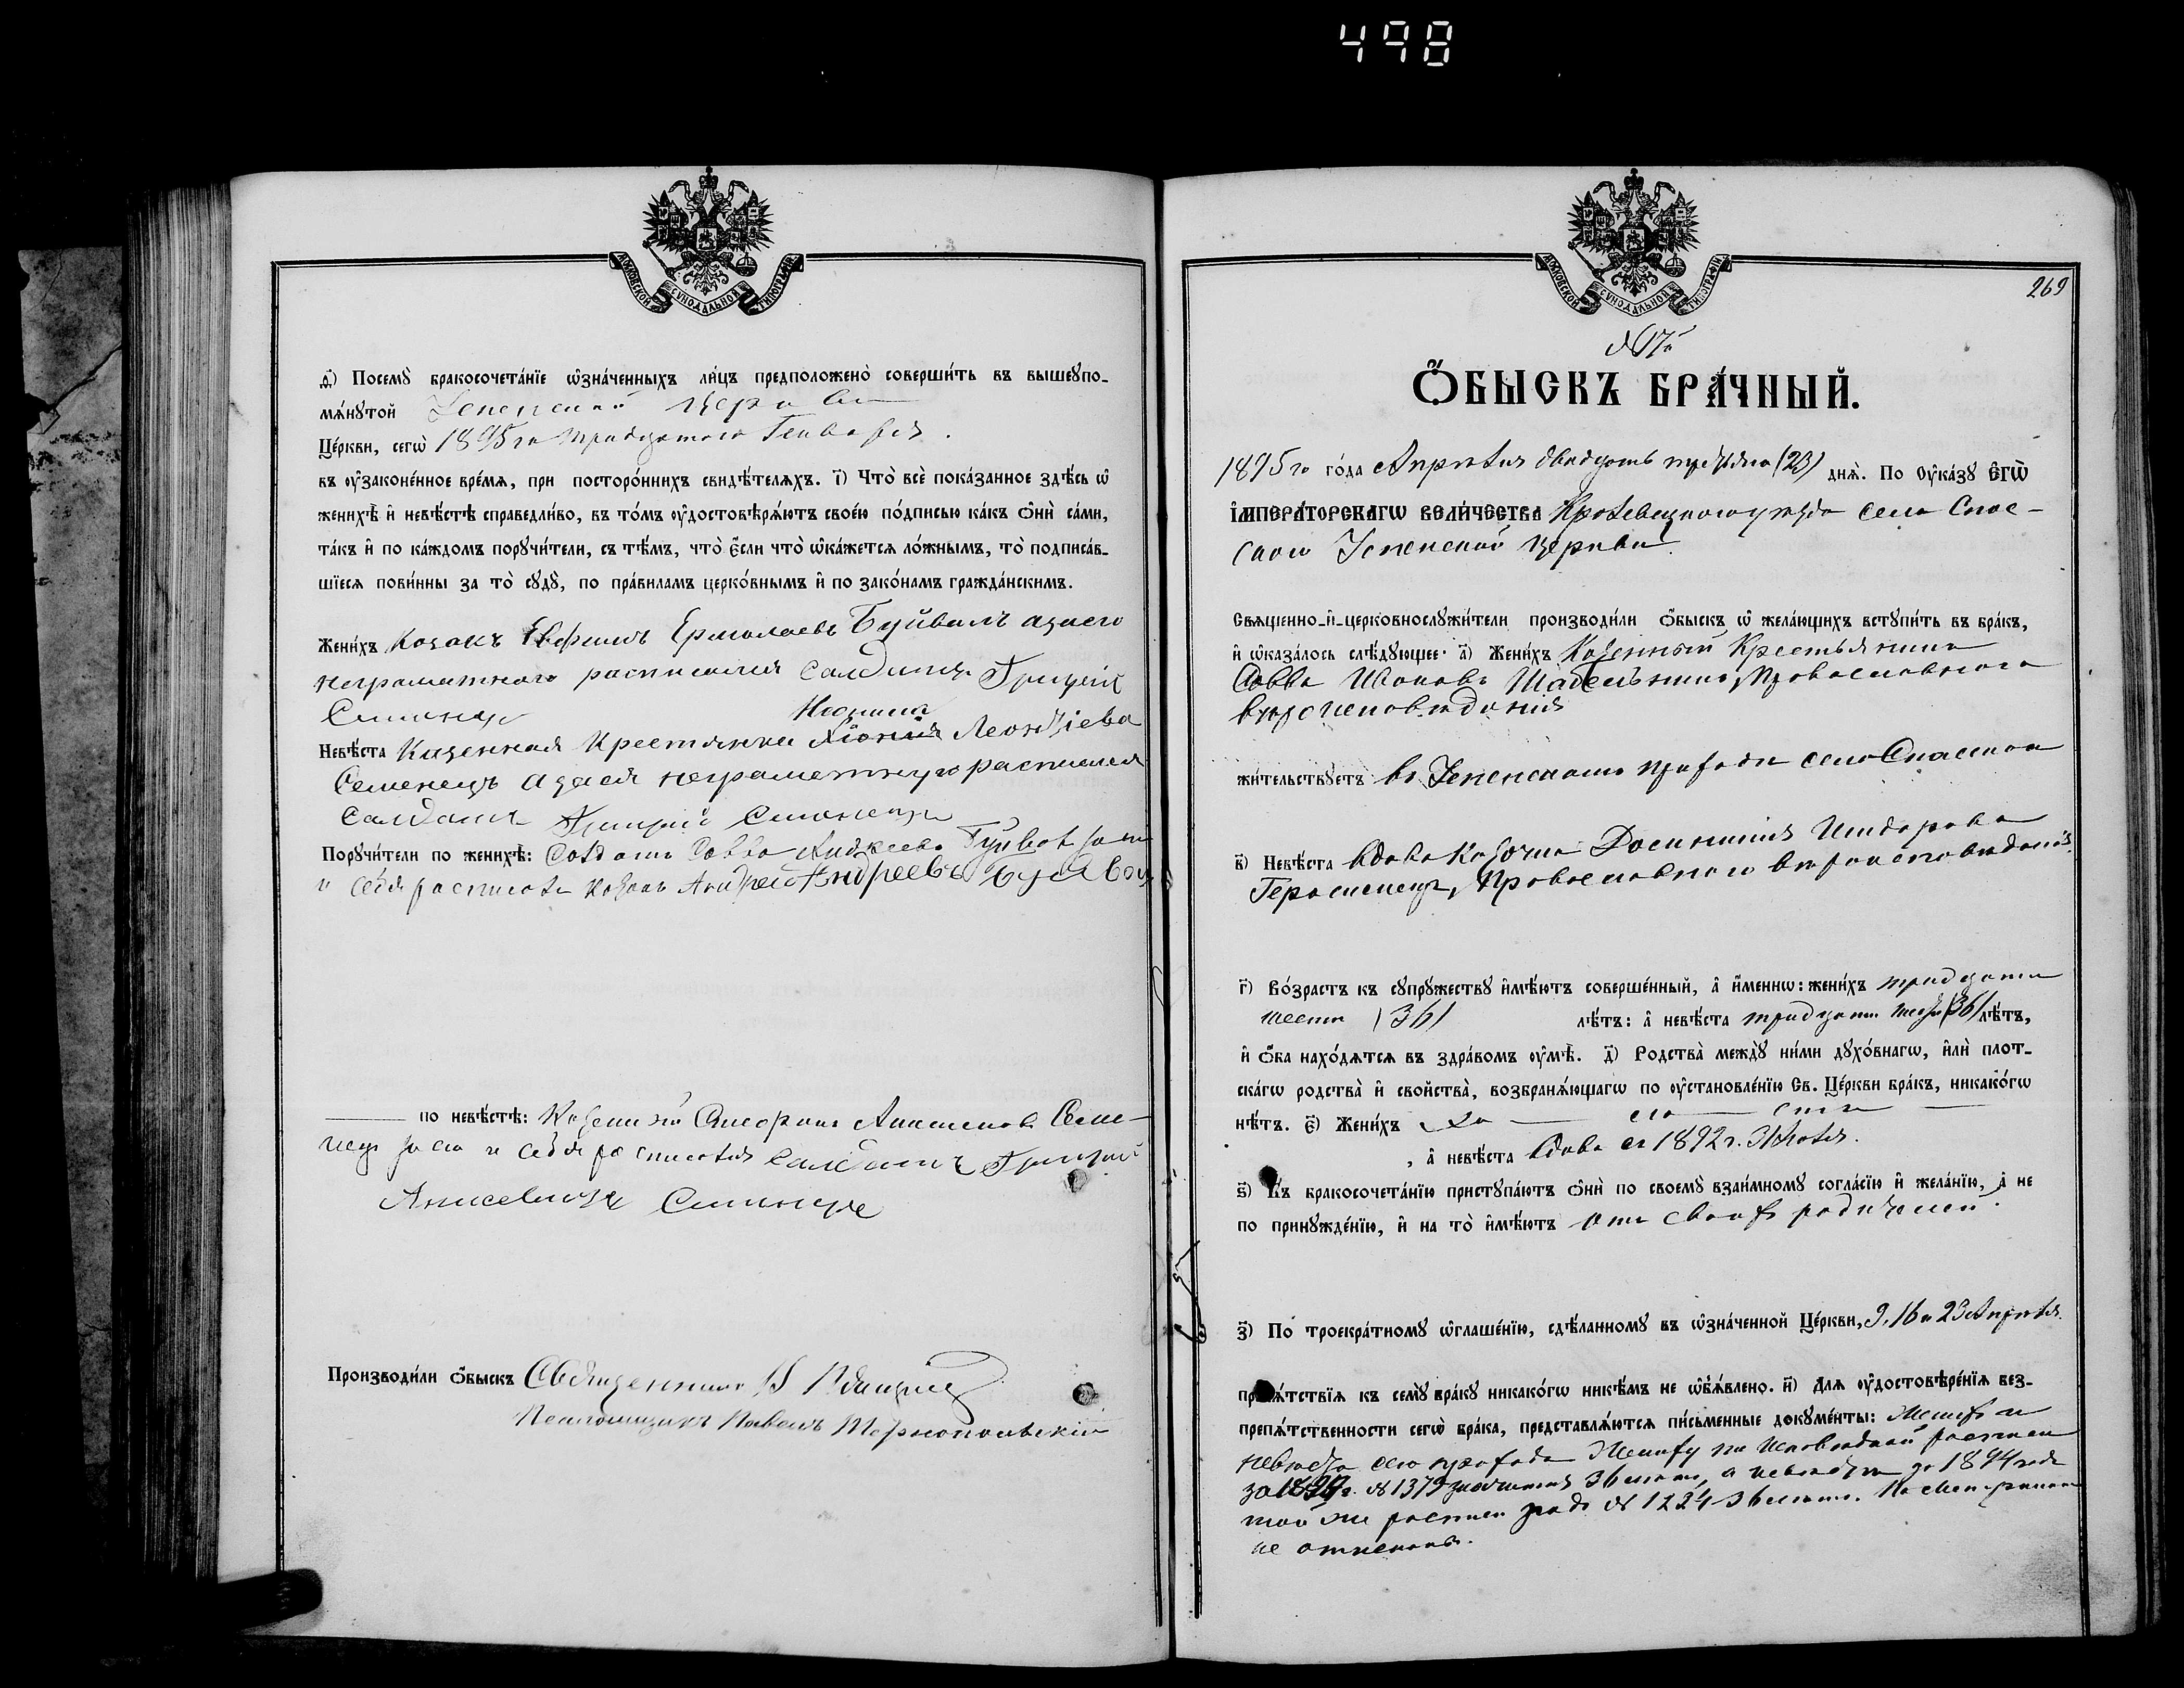 498
МОСКОВСКОЙ СѴНОДАЛЬНОЙ ТИПОГРАФІИ
д҃і) Посемꙋ̀ бракосочета́нїе ѡ҆зна́ченныхъ ли́цъ предположено̀ соверши́ть въ вышеꙋпо-
мѧ́нꙋтой Успенской церкви
Це́ркви, сегѡ̀ 1895 го тридцатого Генваря.
въ ᲂу҆законе́нное вре́мѧ, при посторо́ннихъ свидѣ́телѧхъ. і҃) Что̀ всѐ пока́занное здѣ́сь ѡ҆
женихѣ̀ и҆ невѣ́стѣ справедли́во, въ то́мъ ᲂу҆достовѣрѧ́ютъ свое́ю по́дписью ка́къ ѻ҆нѝ са́ми,
та́къ и҆ по ка́ждомъ порꙋчи́тели, съ тѣ́мъ, что̀ є҆́сли что̀ ѡ҆ка́жетсѧ ло́жнымъ, то̀ подписа́в-
шїесѧ пови́нны за то̀ сꙋдꙋ̀, по пра́виламъ церко́внымъ и҆ по зако́намъ гражда́нскимъ.
Жени́хъ Козакъ Евфимъ Ермолаевъ Буйвалъ азаего
неграматного расписался Салдатъ Григорій
Семенец
Невѣ́ста Казенная Крестянка Леонтіева
Семенецъ азаея неграматную расписался
Салдатъ Григорій Семенецъ
Порꙋчи́тели по женихѣ̀: Солдатъ Савва Андреевъ Буйвал за то
и себя расписался Козакъ Андрей Андреевъ Буйвол
по невѣ́стѣ: Козеный Семе-
нец за сие и себя расписался Салдатъ Григорій
Алисеевичъ Семенецъ
Производи́ли ѻ҆́быскъ Священникъ
Псаломщикъ Павелъ Тернопольскій
МОСКОВСКОЙ СѴНОДАЛЬНОЙ ТИПОГРАФІИ
269
№ 17й
Ѻ҆́БЫСКЪ БРА́ЧНЫЙ.
1895 го го́да Апрѣля двадцать третьяго (23) днѧ̀. По Оу҆ка́зꙋ Є҆ГѠ̀
І҆МПЕРА́ТОРСКАГѠ ВЕЛИ́ЧЕСТВА Кролевецкого уѣзда села Спас-
ского Успенской церкви.
Свѧще́нно-и҆-церковнослꙋжи́тели производи́ли ѻ҆́быскъ ѡ҆ жела́ющихъ встꙋпи́ть въ бра́къ,
и҆ ѡ҆каза́лось слѣ́дꙋющее: а҃) Жени́хъ Козенный Крестьянинъ
Савва Ивановъ Православного
вѣроисповѣданія
жи́тельствꙋетъ въ Успенскомъ приходѣ село Спаское
в҃) Невѣ́ста вдова Козачка Исидорова
Герасименко, Православного вѣроисповѣданія.
г҃) Во́зрастъ къ сꙋпрꙋ́жествꙋ и҆мѣ́ютъ соверше́нный, а҆ и҆́меннѡ: жени́хъ тридцати
шести (36) лѣ́тъ: а҆ невѣ́ста тридцати шести (36) лѣ́тъ,
и҆ ѻ҆́ба нахо́дѧтсѧ въ здра́вомъ ᲂу҆мѣ̀. д҃) Родства̀ междꙋ̀ ни́ми дꙋхо́внагѡ, и҆лѝ плот-
ска́гѡ родства̀ и҆ сво́йства̀, возбранѧ́ющагѡ по ᲂу҆становле́нїю Св. Це́ркви бра́къ, никако́гѡ
нѣ́тъ. є҃) Жени́хъ хо — ло — стъ
, а҆ невѣ́ста вдова съ 1892 г.
ѕ҃) Къ бракосочета́нїю пристꙋпа́ютъ ѻ҆нѝ по своемꙋ̀ взаи́мномꙋ согла́сїю и҆ жела́нїю, а҆ не
по принꙋжде́нїю, и҆ на то̀ и҆мѣ́ютъ отъ своих родителей.
з҃) По троекра́тномꙋ ѡ҆глаше́нїю, сдѣ́ланномꙋ въ ѡ҆зна́ченной Це́ркви, 9, 16 и 23 Апрѣля.
препѧ́тствїѧ къ семꙋ̀ бра́кꙋ никако́гѡ никѣ́мъ не ѡ҆б̾ѧ́влено. и҃) Длѧ ᲂу҆достовѣре́нїѧ без-
препѧ́тственности сегѡ̀ бра́ка, представлѧ́ютсѧ пи́сьменные докꙋме́нты: Жених и
невѣста сего прихода Жениху по Исповѣдной росписи
за г. № 1379 значится 36 летъ, а невѣсте за 1894 годъ
той же росписи подъ № 1224 36 летъ.
не